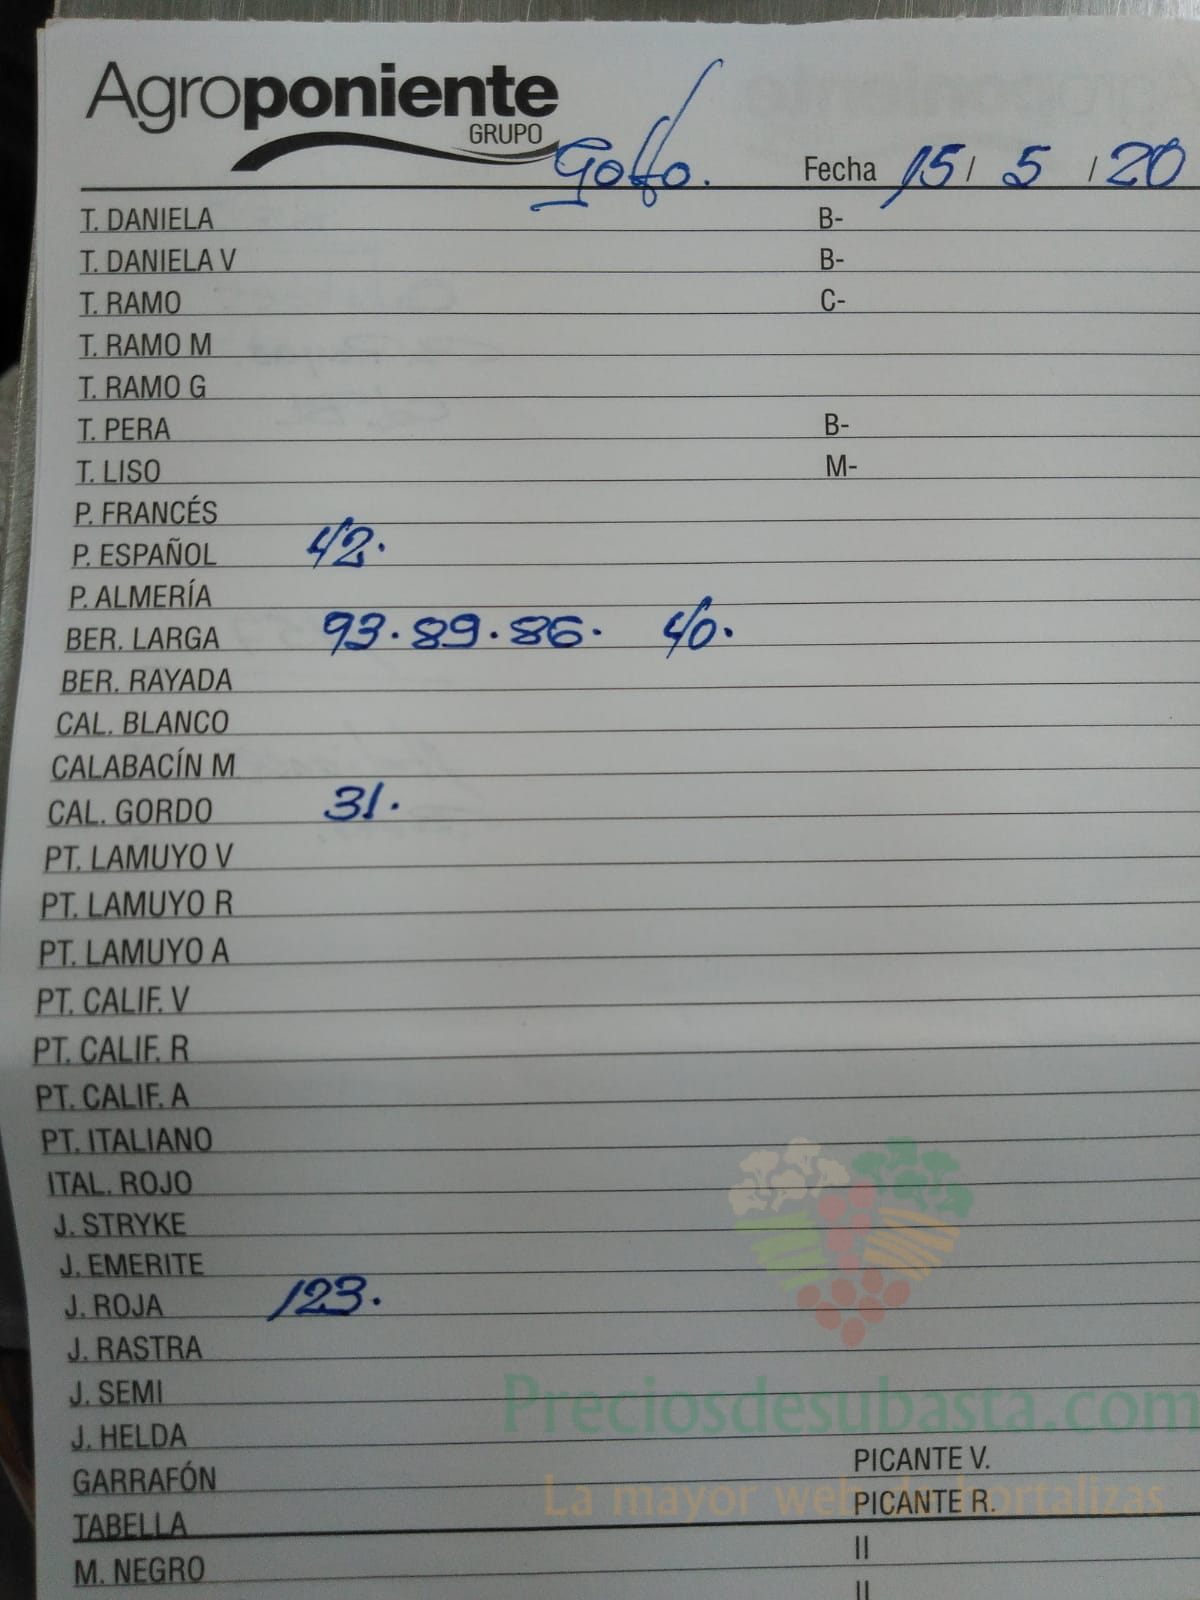 Agroponiente
GRUPO
Golfo. Fecha 15/ 5 /20
T. DANIELA B-
T. DANIELA V B-
T. RAMO C-
T. RAMO M
T. RAMO G
T. PERA B-
T. LISO M-
P. FRANCÉS
P. ESPAÑOL 42.
P. ALMERÍA
BER. LARGA 93.89.86. 40.
BER. RAYADA
CAL. BLANCO
CALABACÍN M
CAL. GORDO 31.
PT. LAMUYO V
PT. LAMUYO R
PT. LAMUYO A
PT. CALIF. V
PT. CALIF. R
PT. CALIF. A
PT. ITALIANO
ITAL. ROJO
J. STRYKE
J. EMERITE
J. ROJA 123.
J. RASTRA
J. SEMI
Preciosdesubasta.com
J. HELDA
PICANTE V.
GARRAFÓN
La mayor web de hortalizas
PICANTE R.
TABELLA
M. NEGRO II
II